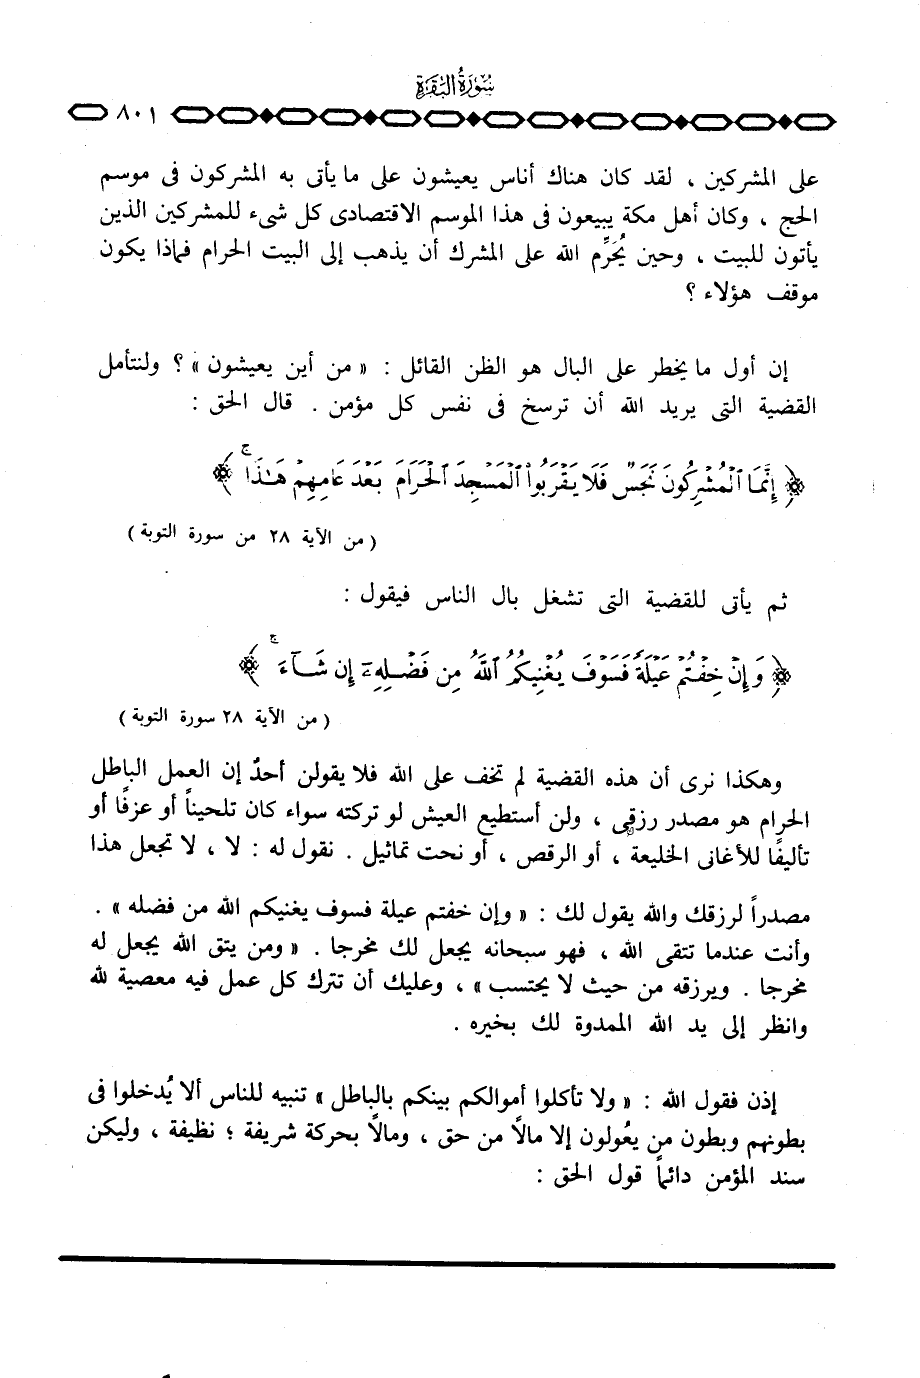 سُورَةُ البَقَرَةِ
٨٠١
على المشركين ، لقد كان هناك أناس يعيشون على ما يأتى به المشركون فى موسم
الحج ، وكان أهل مكة يبيعون فى هذا الموسم الاقتصادى كل شىء للمشركين الذين
يأتون للبيت ، وحين يُحَرِّم الله على المشرك أن يذهب إلى البيت الحرام فماذا يكون
موقف هؤلاء ؟
إن أول ما يخطر على البال هو الظن القائل : « من أين يعيشون » ؟ ولنتأمل
القضية التى يريد الله أن ترسخ فى نفس كل مؤمن . قال الحق :
﴿ إِنَّمَا ٱلْمُشْرِكُونَ نَجَسٌ فَلَا يَقْرَبُوا۟ ٱلْمَسْجِدَ ٱلْحَرَامَ بَعْدَ عَامِهِمْ هَـٰذَا ۚ ﴾
( من الآية ٢٨ من سورة التوبة )
ثم يأتى للقضية التى تشغل بال الناس فيقول :
﴿ وَإِنْ خِفْتُمْ عَيْلَةً فَسَوْفَ يُغْنِيكُمُ ٱللَّهُ مِن فَضْلِهِۦٓ إِن شَآءَ ۚ ﴾
( من الآية ٢٨ سورة التوبة )
وهكذا نرى أن هذه القضية لم تخف على الله فلا يقولن أحدٌ إن العمل الباطل
الحرام هو مصدر رزقى ، ولن أستطيع العيش لو تركته سواء كان تلحيناً أو عزفًا أو
تأليفًا للأغانى الخليعة ، أو الرقص ، أو نحت تماثيل . نقول له : لا ، لا تجعل هذا
مصدراً لرزقك والله يقول لك : « وإن خفتم عيلة فسوف يغنيكم الله من فضله » .
وأنت عندما تتقى الله ، فهو سبحانه يجعل لك مخرجا . « ومن يتق الله يجعل له
مخرجا . ويرزقه من حيث لا يحتسب » ، وعليك أن تترك كل عمل فيه معصية لله
وانظر إلى يد الله الممدوة لك بخيره .
إذن فقول الله : « ولا تأكلوا أموالكم بينكم بالباطل » تنبيه للناس ألا يُدخلوا فى
بطونهم وبطون من يعُولون إلا مالاً من حق ، ومالاً بحركة شريفة ؛ نظيفة ، وليكن
سند المؤمن دائماً قول الحق :